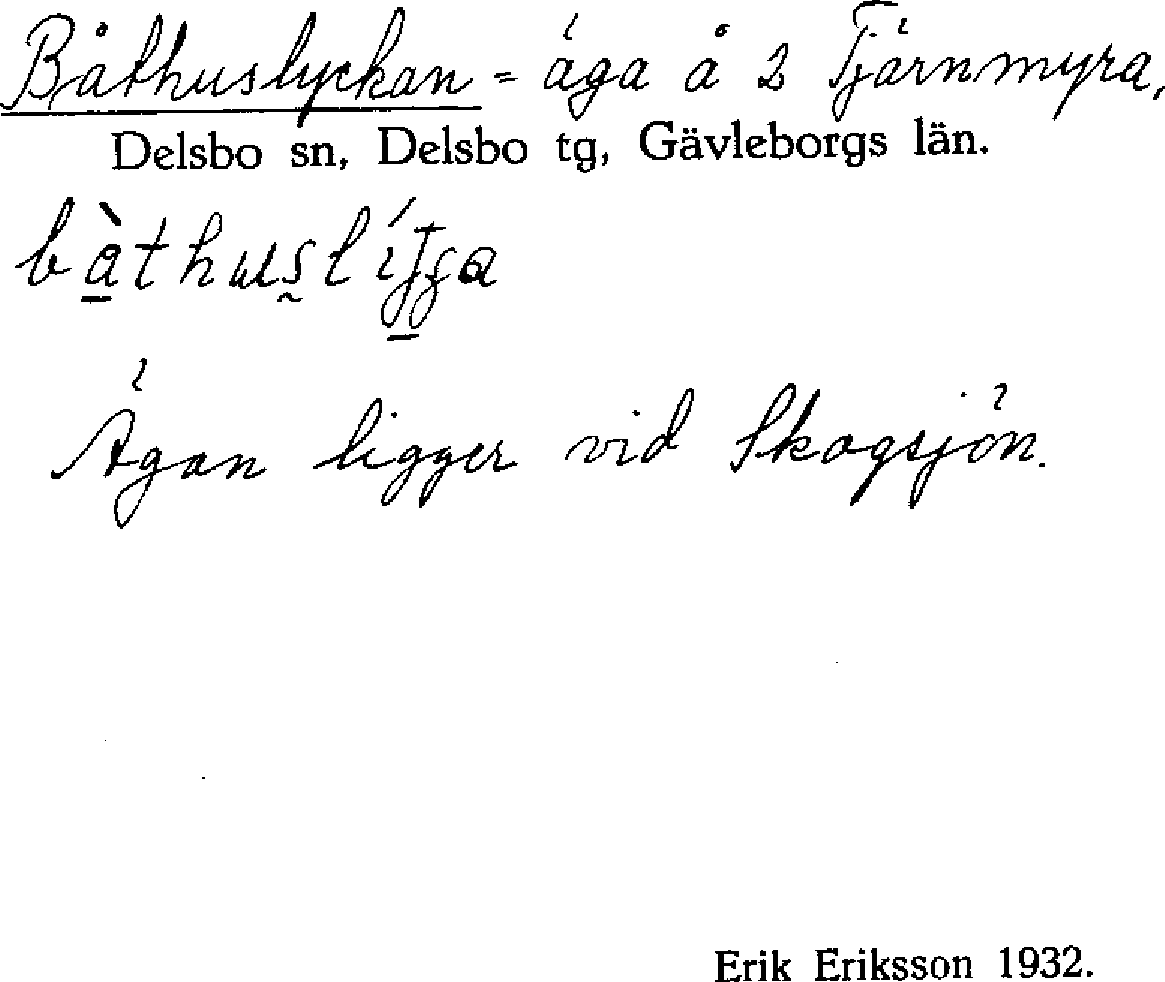 Båthuslyckan = äga å 2 Tjärnmyra,
Delsbo sn, Delsbo tg, Gävleborgs län.
Ägan ligger vid Skogsjön.
Erik Eriksson 1932.